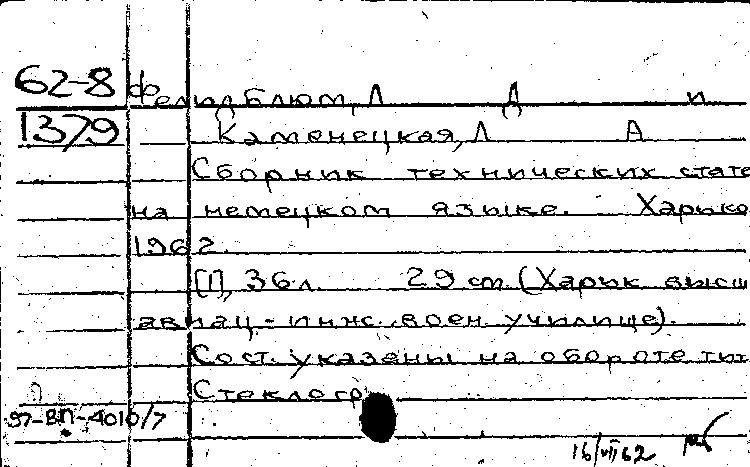 62-8
1379
Фельдблюм, Л Д и
Каменецкая, Л А
Сборник технических стате
на немецком языке. Харько
1962.
[1], 36 л. 29 см. (Харьк высш
авиац-инж. воен. училище).
Сост. указаны на обороте тит
Стеклогр
97-ВП-4010/7
16/VII 62